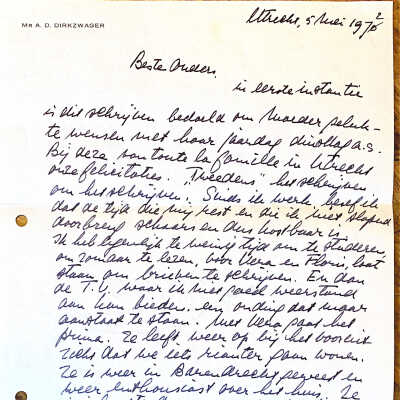 Mr A. D. DIRKZWAGER
Utrecht, 5 Mei 1970
2
Beste Ouders,
in eerste instantie
is dit schrijven bedoeld om Moeder geluk-
te wensen met haar jaardag dinsdag a.s.
Bij deze van toute la famille in Utrecht
onze felicitaties. "Tweedens" het schrijven
om het schrijven. Sinds ik werk, besef ik
dat de tijd die mij rest en die ik niet slapend
doorbreng schaars en dus kostbaar is.
Ik heb eigenlijk te weinig tijd om te studeren,
om zomaar te lezen, voor Vera en Floris, laat
staan om brieven te schrijven. En dan
de T.V. waar ik niet goed weerstand
aan kan bieden. een onding dat
aanstaat te staan. Met Vera gaat het
prima. Ze leeft weer op bij het vooruit-
zicht dat we iets rianter gaan wonen.
Ze is weer in Barendrecht geweest en
weer enthousiast over het huis. Ze